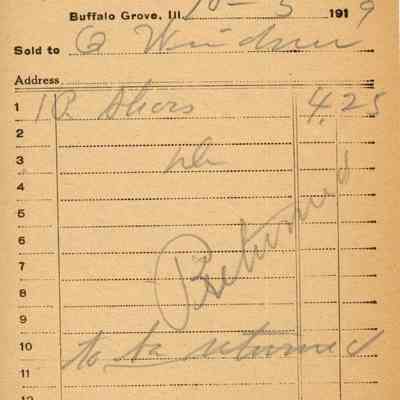 Buffalo Grove, Ill. 10-3 1919
Sold to
Address
1 1 P. Shoes 4.25
2
3
4
5
6
7 Returned
8
9
10 to be returned
11
12